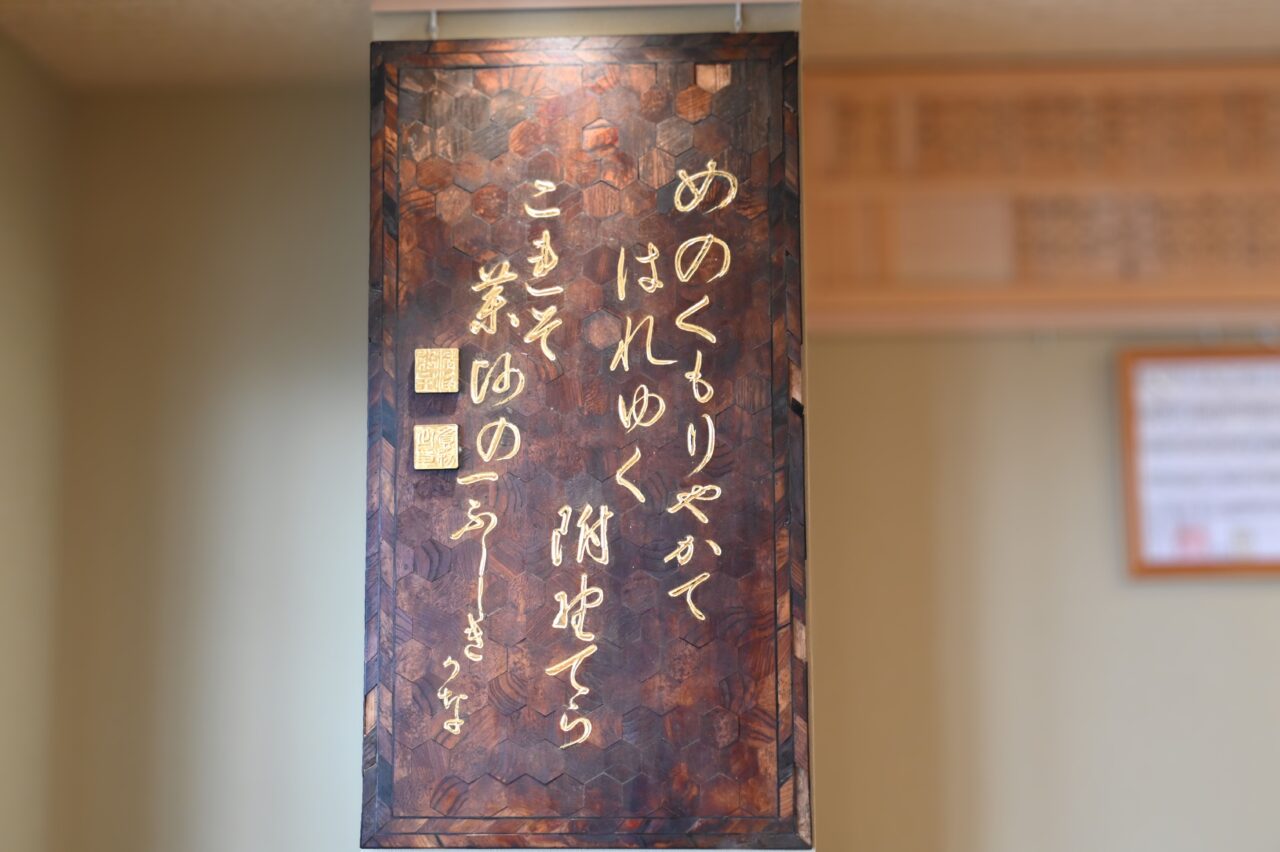 めのくもりやかて
はれゆく
附てら
これそ
薬师の一ふしきかな